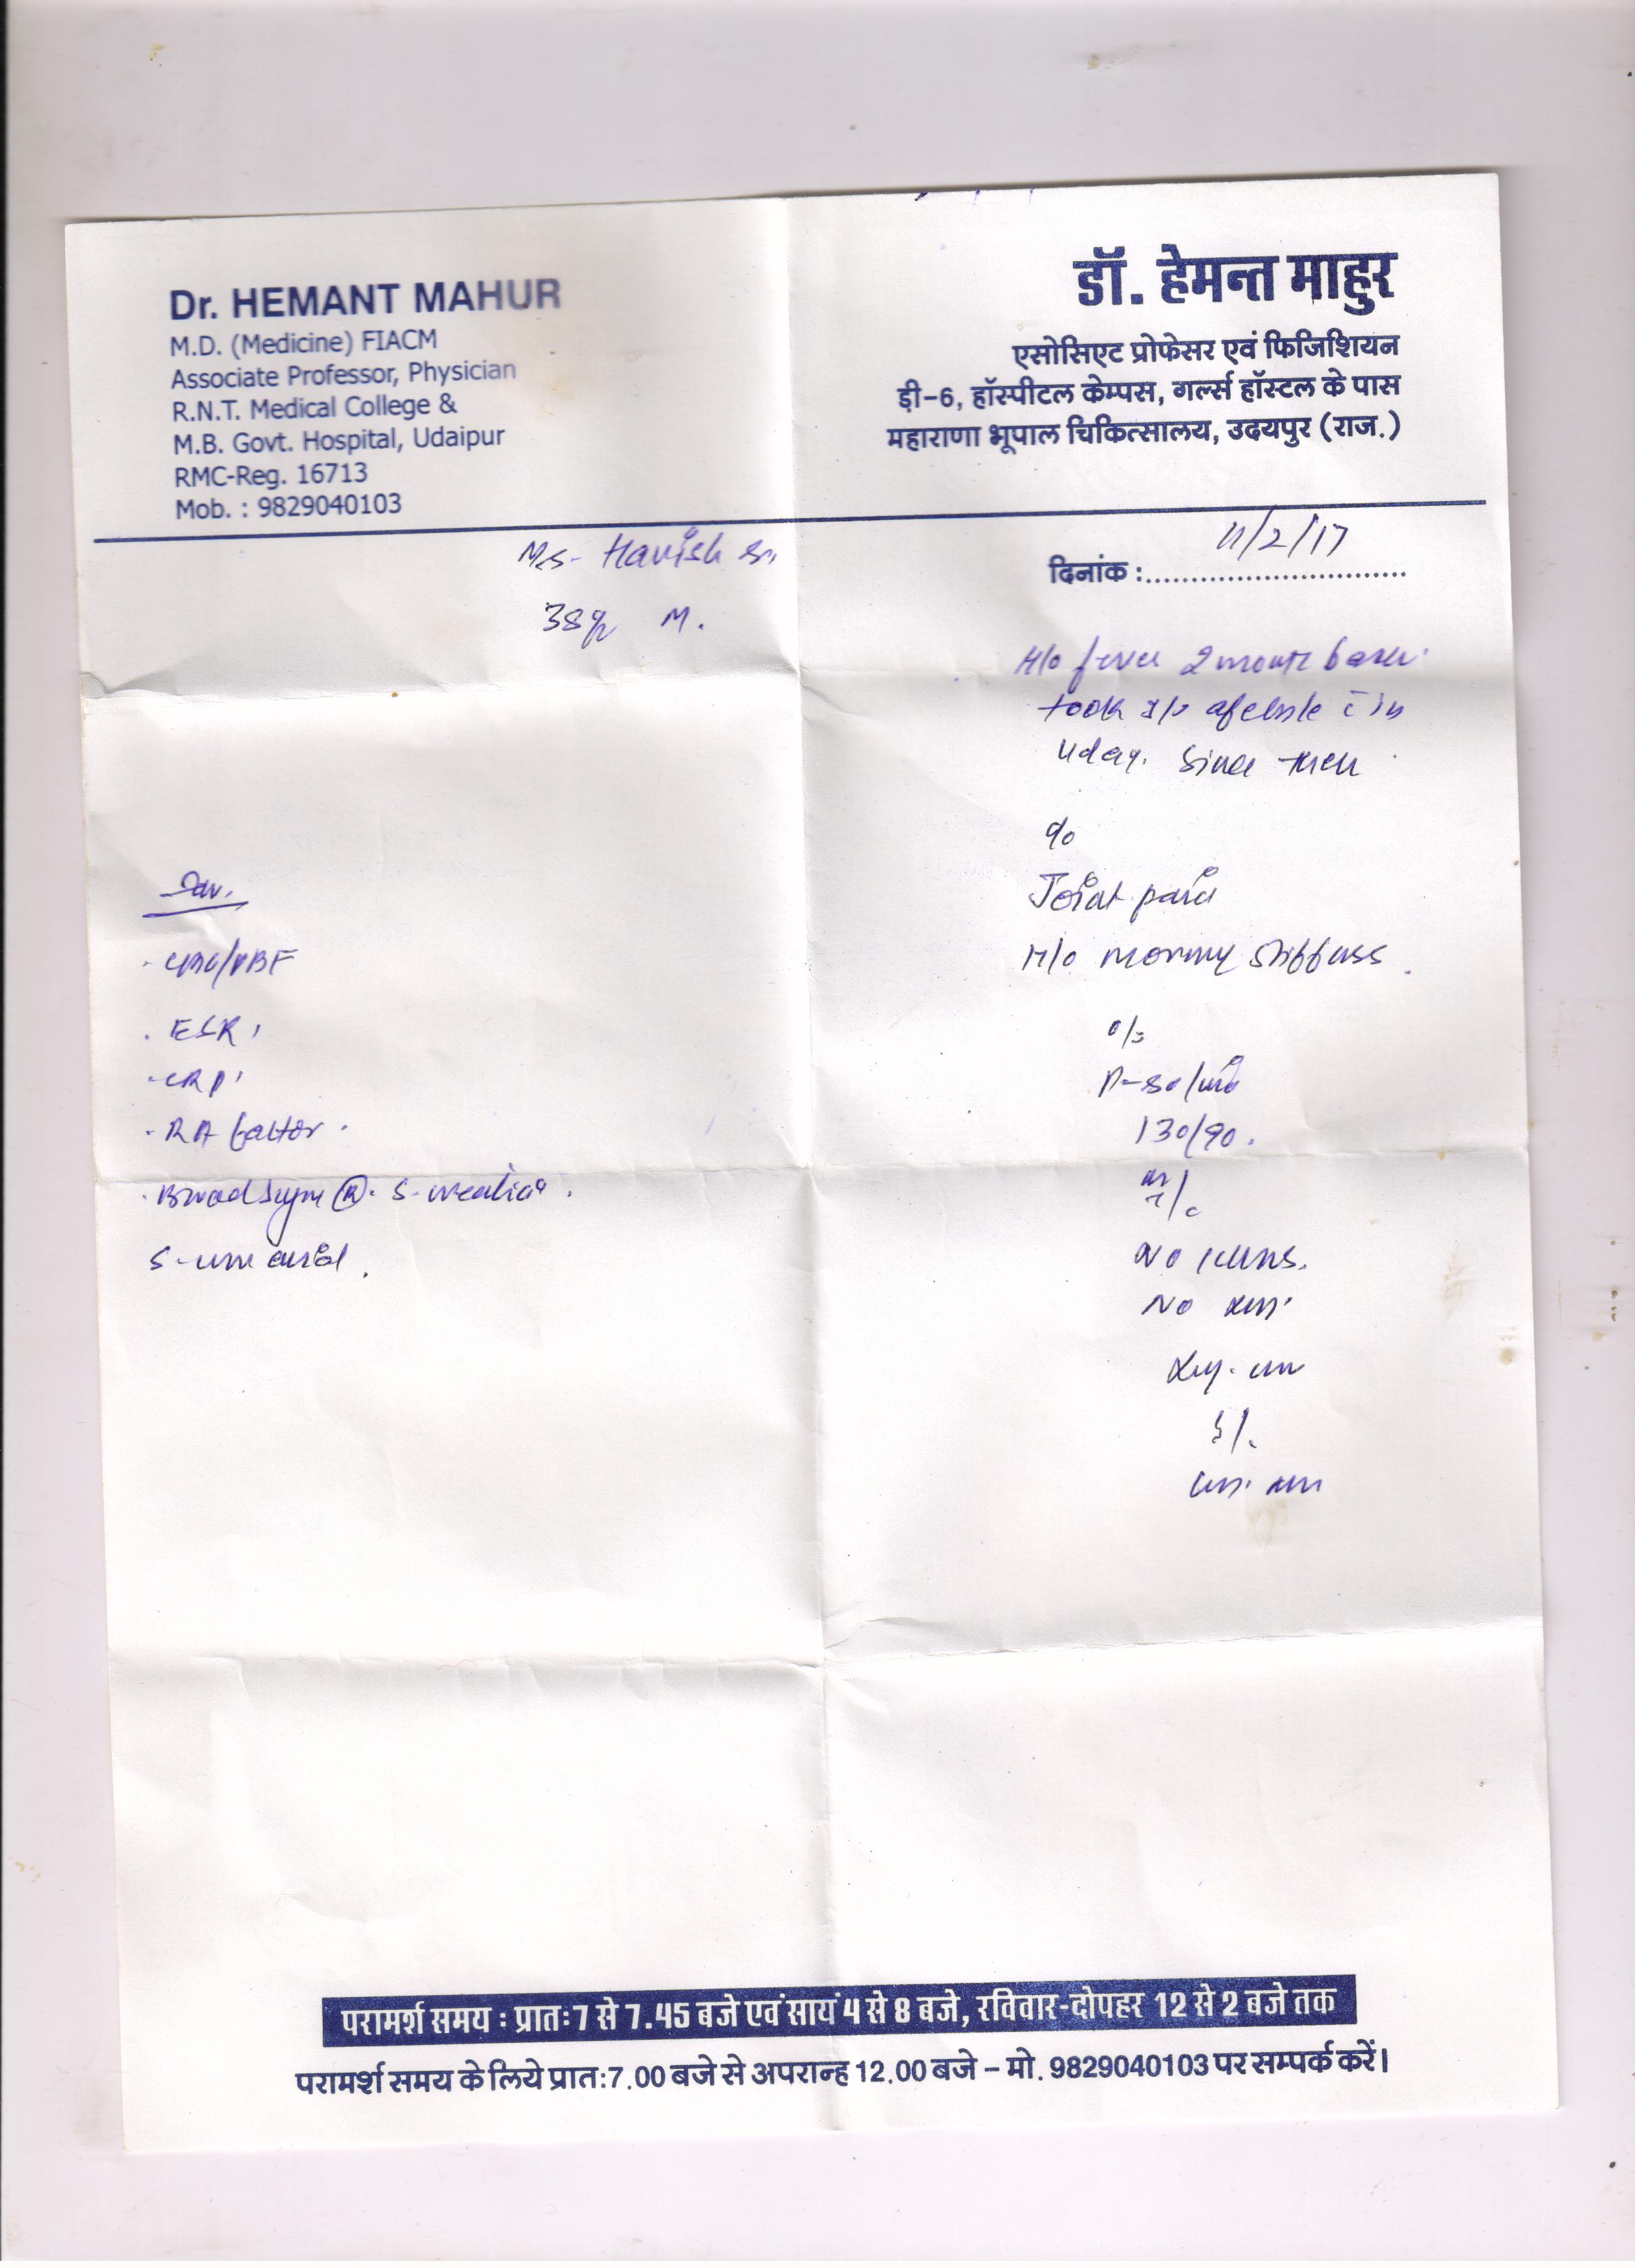 Dr. HEMANT MAHUR
M.D. (Medicine) FIACM
Associate Professor, Physician
R.N.T. Medical College &
M.B. Govt. Hospital, Udaipur
RMC-Reg. 16713
Mob. : 9829040103
डॉ. हेमन्त माहुर
एसोसिएट प्रोफेसर एवं फिजिशियन
डी-6, हॉस्पीटल केम्पस, गर्ल्स हॉस्टल के पास
महाराणा भूपाल चिकित्सालय, उदयपुर (राज.)
Havish
38 M.
दिनांक : 11/2/17
H/o fever 2 month
took
Since then
c/o
Joint pain
H/o morning stiffness
o/e
P-80/min
130/90.
Inv.
. CBC/PBF
. ESR
. CRP
. RA factor
. Blood Sugar (R). S. creatinine
S. uric acid
परामर्श समय : प्रातः7 से 7.45 बजे एवं सायं 4 से 8 बजे, रविवार-दोपहर 12 से 2 बजे तक
परामर्श समय के लिये प्रातः7.00 बजे से अपरान्ह 12.00 बजे – मो. 9829040103 पर सम्पर्क करें।